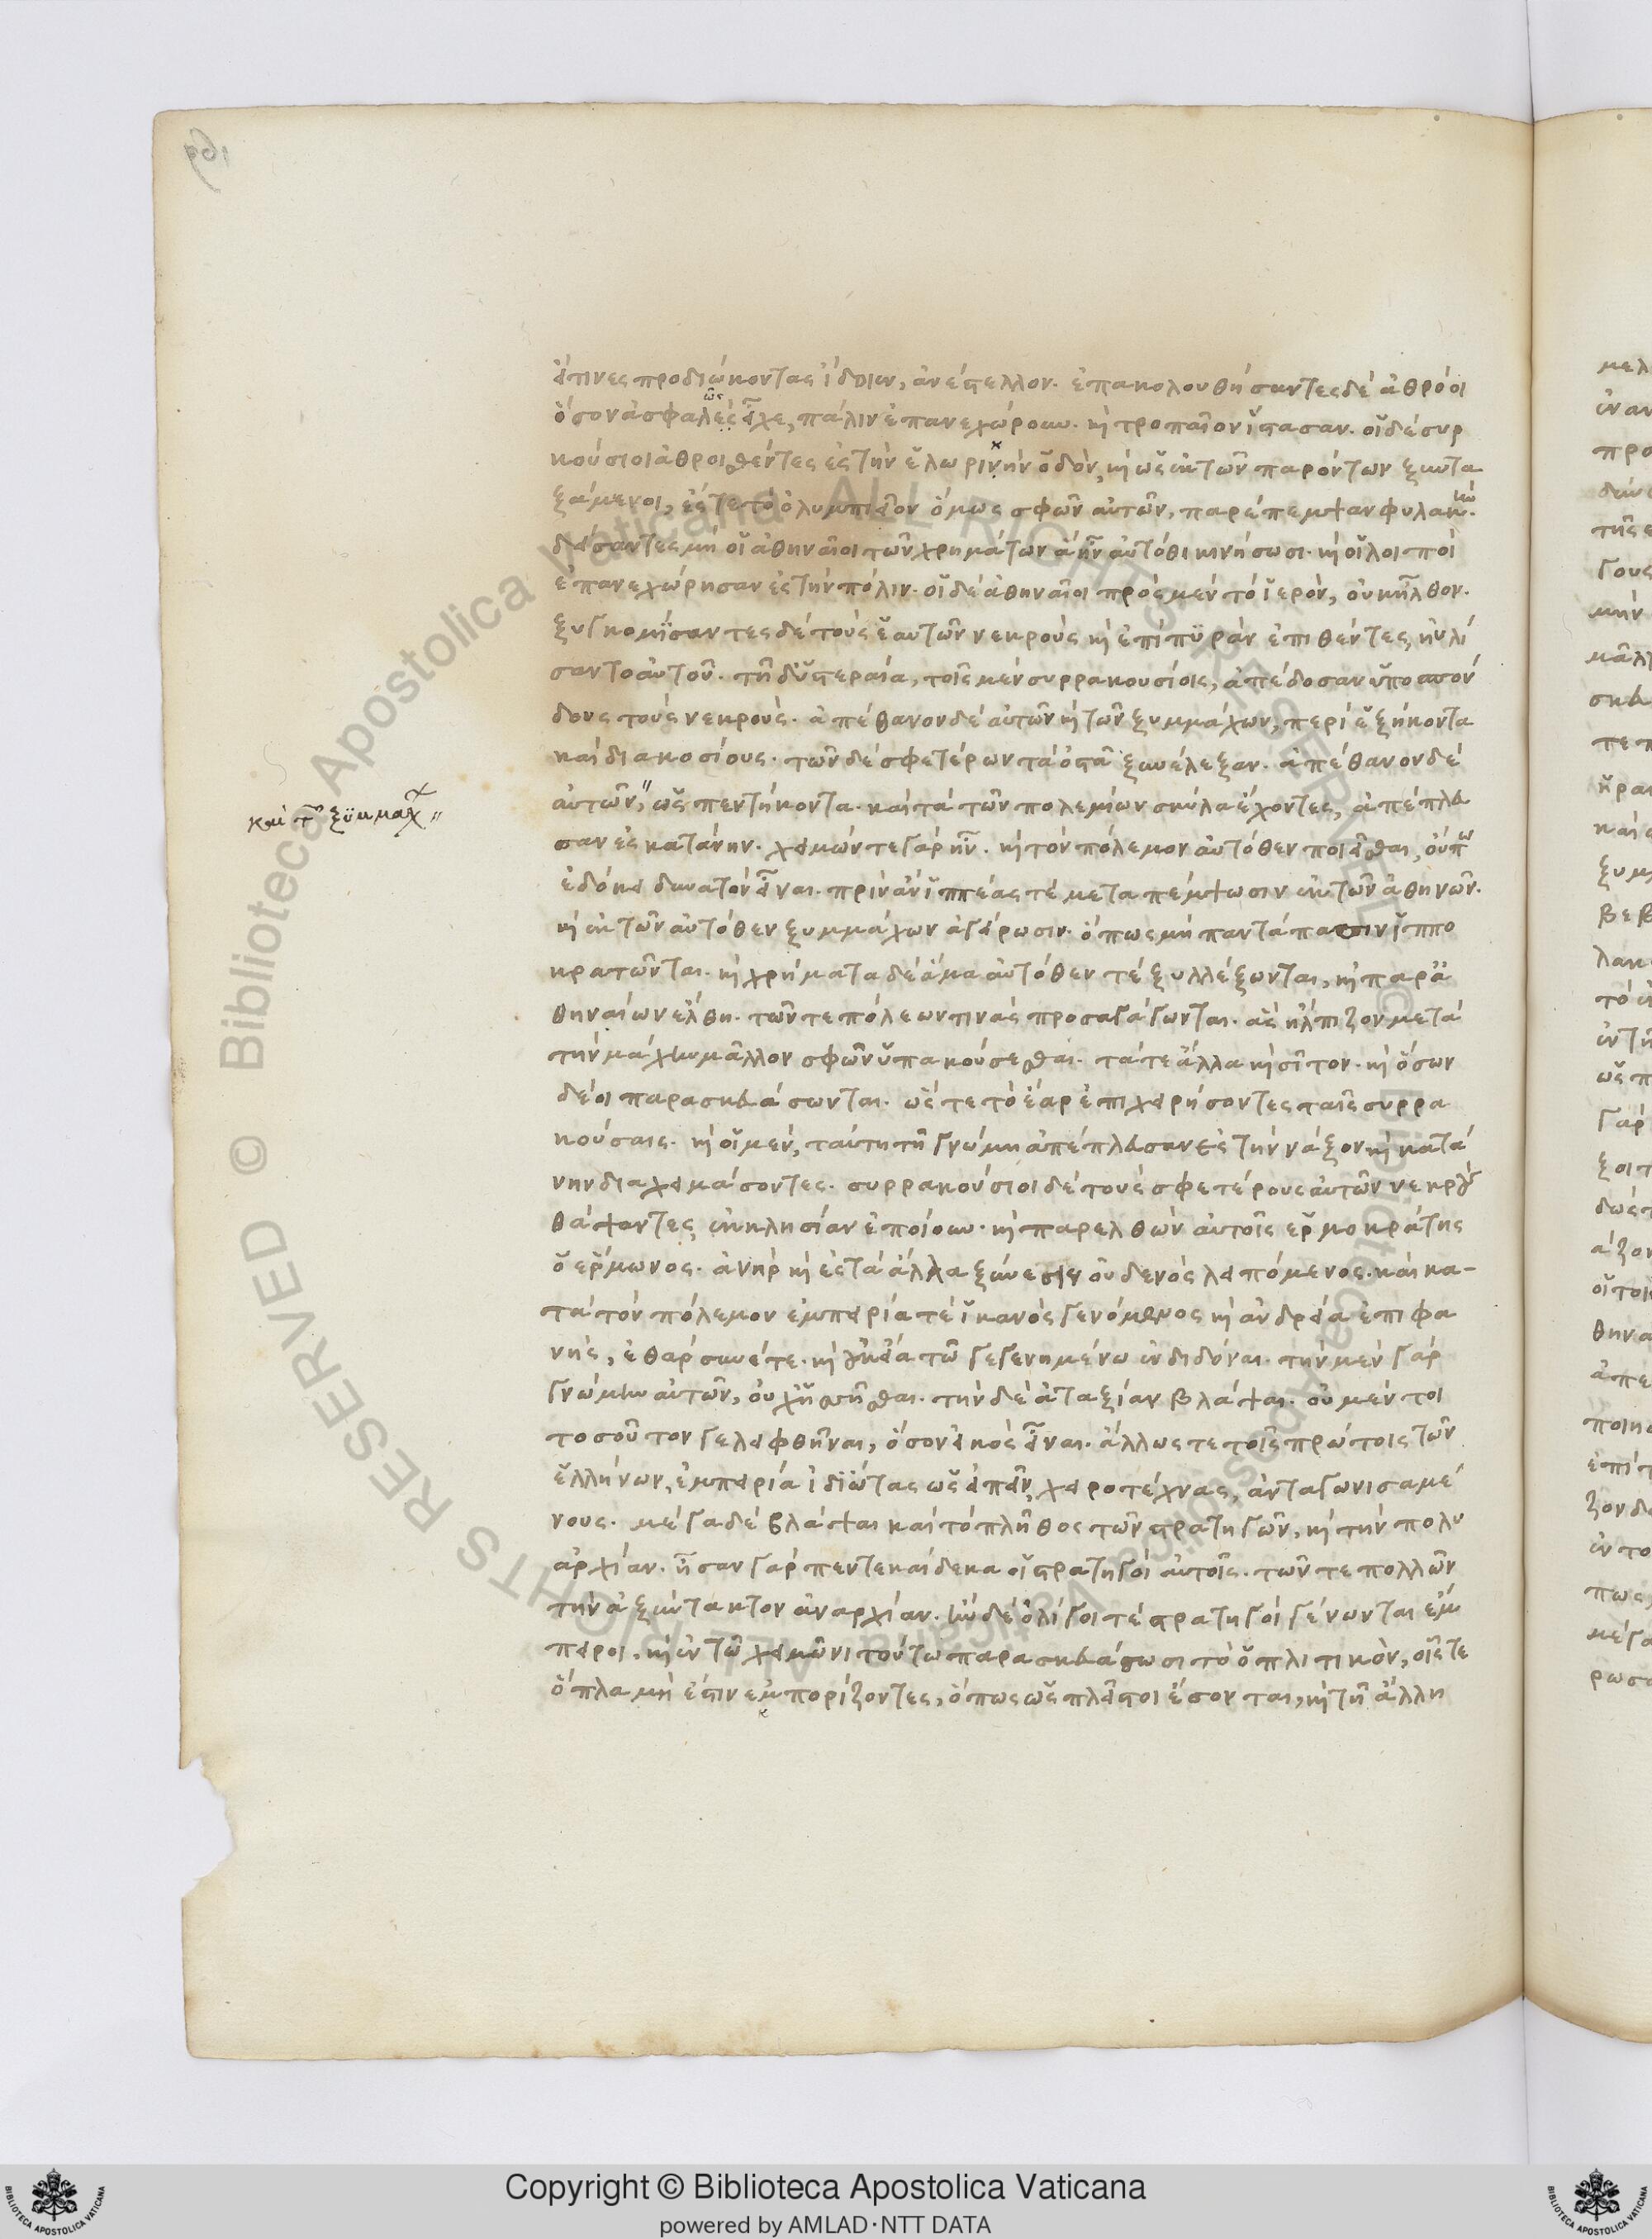 εἴτινες προδιώκοντας ἴδοιεν, ἀνέστελλον. ἐπακολουθήσαντες δὲ ἁθρόοι
ὅσον ἀσφαλὲς εἶχε, πάλιν ἐπανεχώρουν. καὶ τροπαῖον ἵστασαν. οἱ δὲ συρ
ὡς
κούσιοι ἁθροισθέντες ἐς τὴν ἑλωρινὴν ὁδὸν, καὶ ὡς ἐκ τῶν παρόντων ξυντα
ξάμενοι, ἔς τε τὸ ὀλυμπιεῖον ὅμως σφῶν αὐτῶν, παρέπεμψαν φυλακήν.
δείσαντες μὴ οἱ ἀθηναῖοι τῶν χρημάτων ἃ ἦν αὐτόθι κινήσωσι. καὶ οἱ λοιποὶ
ἐπανεχώρησαν ἐς τὴν πόλιν. οἱ δὲ ἀθηναῖοι πρὸς μὲν τὸ ἱερὸν, οὐκ ἦλθον.
ξυγκομίσαντες δὲ τοὺς ἑαυτῶν νεκροὺς καὶ ἐπὶ πυρὰν ἐπιθέντες, ηὐλί
σαντο αὐτοῦ. τῆ δ' ὑστεραία, τοῖς μὲν συρρακουσίοις, ἀπέδοσαν ὑποσπόν
δους τοὺς νεκρούς. ἀπέθανον δὲ αὐτῶν καὶ τῶν ξυμμάχων, περὶ ἑξήκοντα
καὶ διακοσίους. τῶν δὲ σφετέρων τὰ ὀστᾶ ξυνέλεξαν. ἀπέθανον δὲ
αὐτῶν,〃 ὡς πεντήκοντα. καὶ τὰ τῶν πολεμίων σκύλα ἔχοντες, ἀπέπλευ
καὶ τῶν ξυμμάχ〃
σαν ἐς κατάνην. χειμών τε γὰρ ἦν. καὶ τὸν πόλεμον αὐτόθεν ποιεῖσθαι, οὔπω
ἐδόκει δυνατὸν εἶναι. πρὶν ἂν ἱππέας τὲ μεταπέμψωσιν ἐκ τῶν ἀθηνῶν.
καὶ ἐκ τῶν αὐτόθεν ξυμμάχων ἀγείρωσιν. ὅπως μὴ παντάπασιν ἱππο
κρατῶνται. καὶ χρήματα δὲ ἅμα αὐτόθεν τὲ ξυλλέξωνται, καὶ παρ' ἀ
θηναίων ἔλθη. τῶν τε πόλεων τινὰς προσαγάγωνται. ἃς ἤλπιζον μετὰ
τὴν μάχην μᾶλλον σφῶν ὑπακούσεσθαι. τά τε ἄλλα καὶ σῖτον. καὶ ὅσων
δέοι παρασκευάσωνται. ὡς ἐς τὸ ἔαρ ἐπιχειρήσοντες ταῖς συρρα
κούσαις. καὶ οἱ μὲν, ταύτη τῆ γνώμη ἀπέπλευσαν ἐς τὴν νάξον καὶ κατά
νην διαχειμάσοντες. συρρακούσιοι δὲ τοὺς σφετέρους αὐτῶν νεκροὺς
θάψαντες ἐκκλησίαν ἐποίουν. καὶ παρελθὼν αὐτοῖς ἑρμοκράτης
ὁ ἕρμωνος. ἀνὴρ καὶ ἐς τὰ ἄλλα ξύνεσιν οὐδενὸς λειπόμενος. καὶ κα-
τὰ τὸν πόλεμον ἐμπειρία τὲ ἱκανὸς γενόμενος καὶ ἀνδρεία ἐπιφα
νὴς, ἐθάρσυνέ τε. καὶ οὐκ εἴα τῶ γεγενημένω ἐνδιδόναι. τὴν μὲν γὰρ
γνώμην αὐτῶν, οὐχ ἡσσῆσθαι. τὴν δὲ ἀταξίαν βλάψαι. οὐ μέντοι
τοσοῦτον γε λειφθῆναι, ὅσον εἰκὸς εἶναι. ἄλλως τε τοῖς πρώτοις τῶν
ἑλλήνων, ἐμπειρία ἰδιώτας ὡς εἰπεῖν, χειροτέχνας, ἀνταγωνισαμέ
νους. μέγα δὲ βλάψαι καὶ τὸ πλῆθος τῶν στρατηγῶν, καὶ τὴν πολυ
αρχίαν. ἦσαν γὰρ πεντεκαίδεκα οἱ στρατηγοὶ αὐτοῖς. τῶν τε πολλῶν
τὴν ἀξύντακτον ἀναρχίαν. ἢν δὲ ὀλίγοι τὲ στρατηγοὶ γένωνται ἔμ
πειροι. καὶ ἐν τῶ χειμῶνι τούτω παρασκευάσωσι τὸ ὁπλιτικὸν, οἷς τε
ὅπλα μὴ ἔστιν ἐμπορίζοντες, ὅπως ὡς πλεῖστοι ἔσονται, καὶ τῆ ἄλλη
© Biblioteca Apostolica Vaticana ALL RIGHTS RESERVED
Copyright © Biblioteca Apostolica Vaticana
powered by AMLAD·NTT DATA